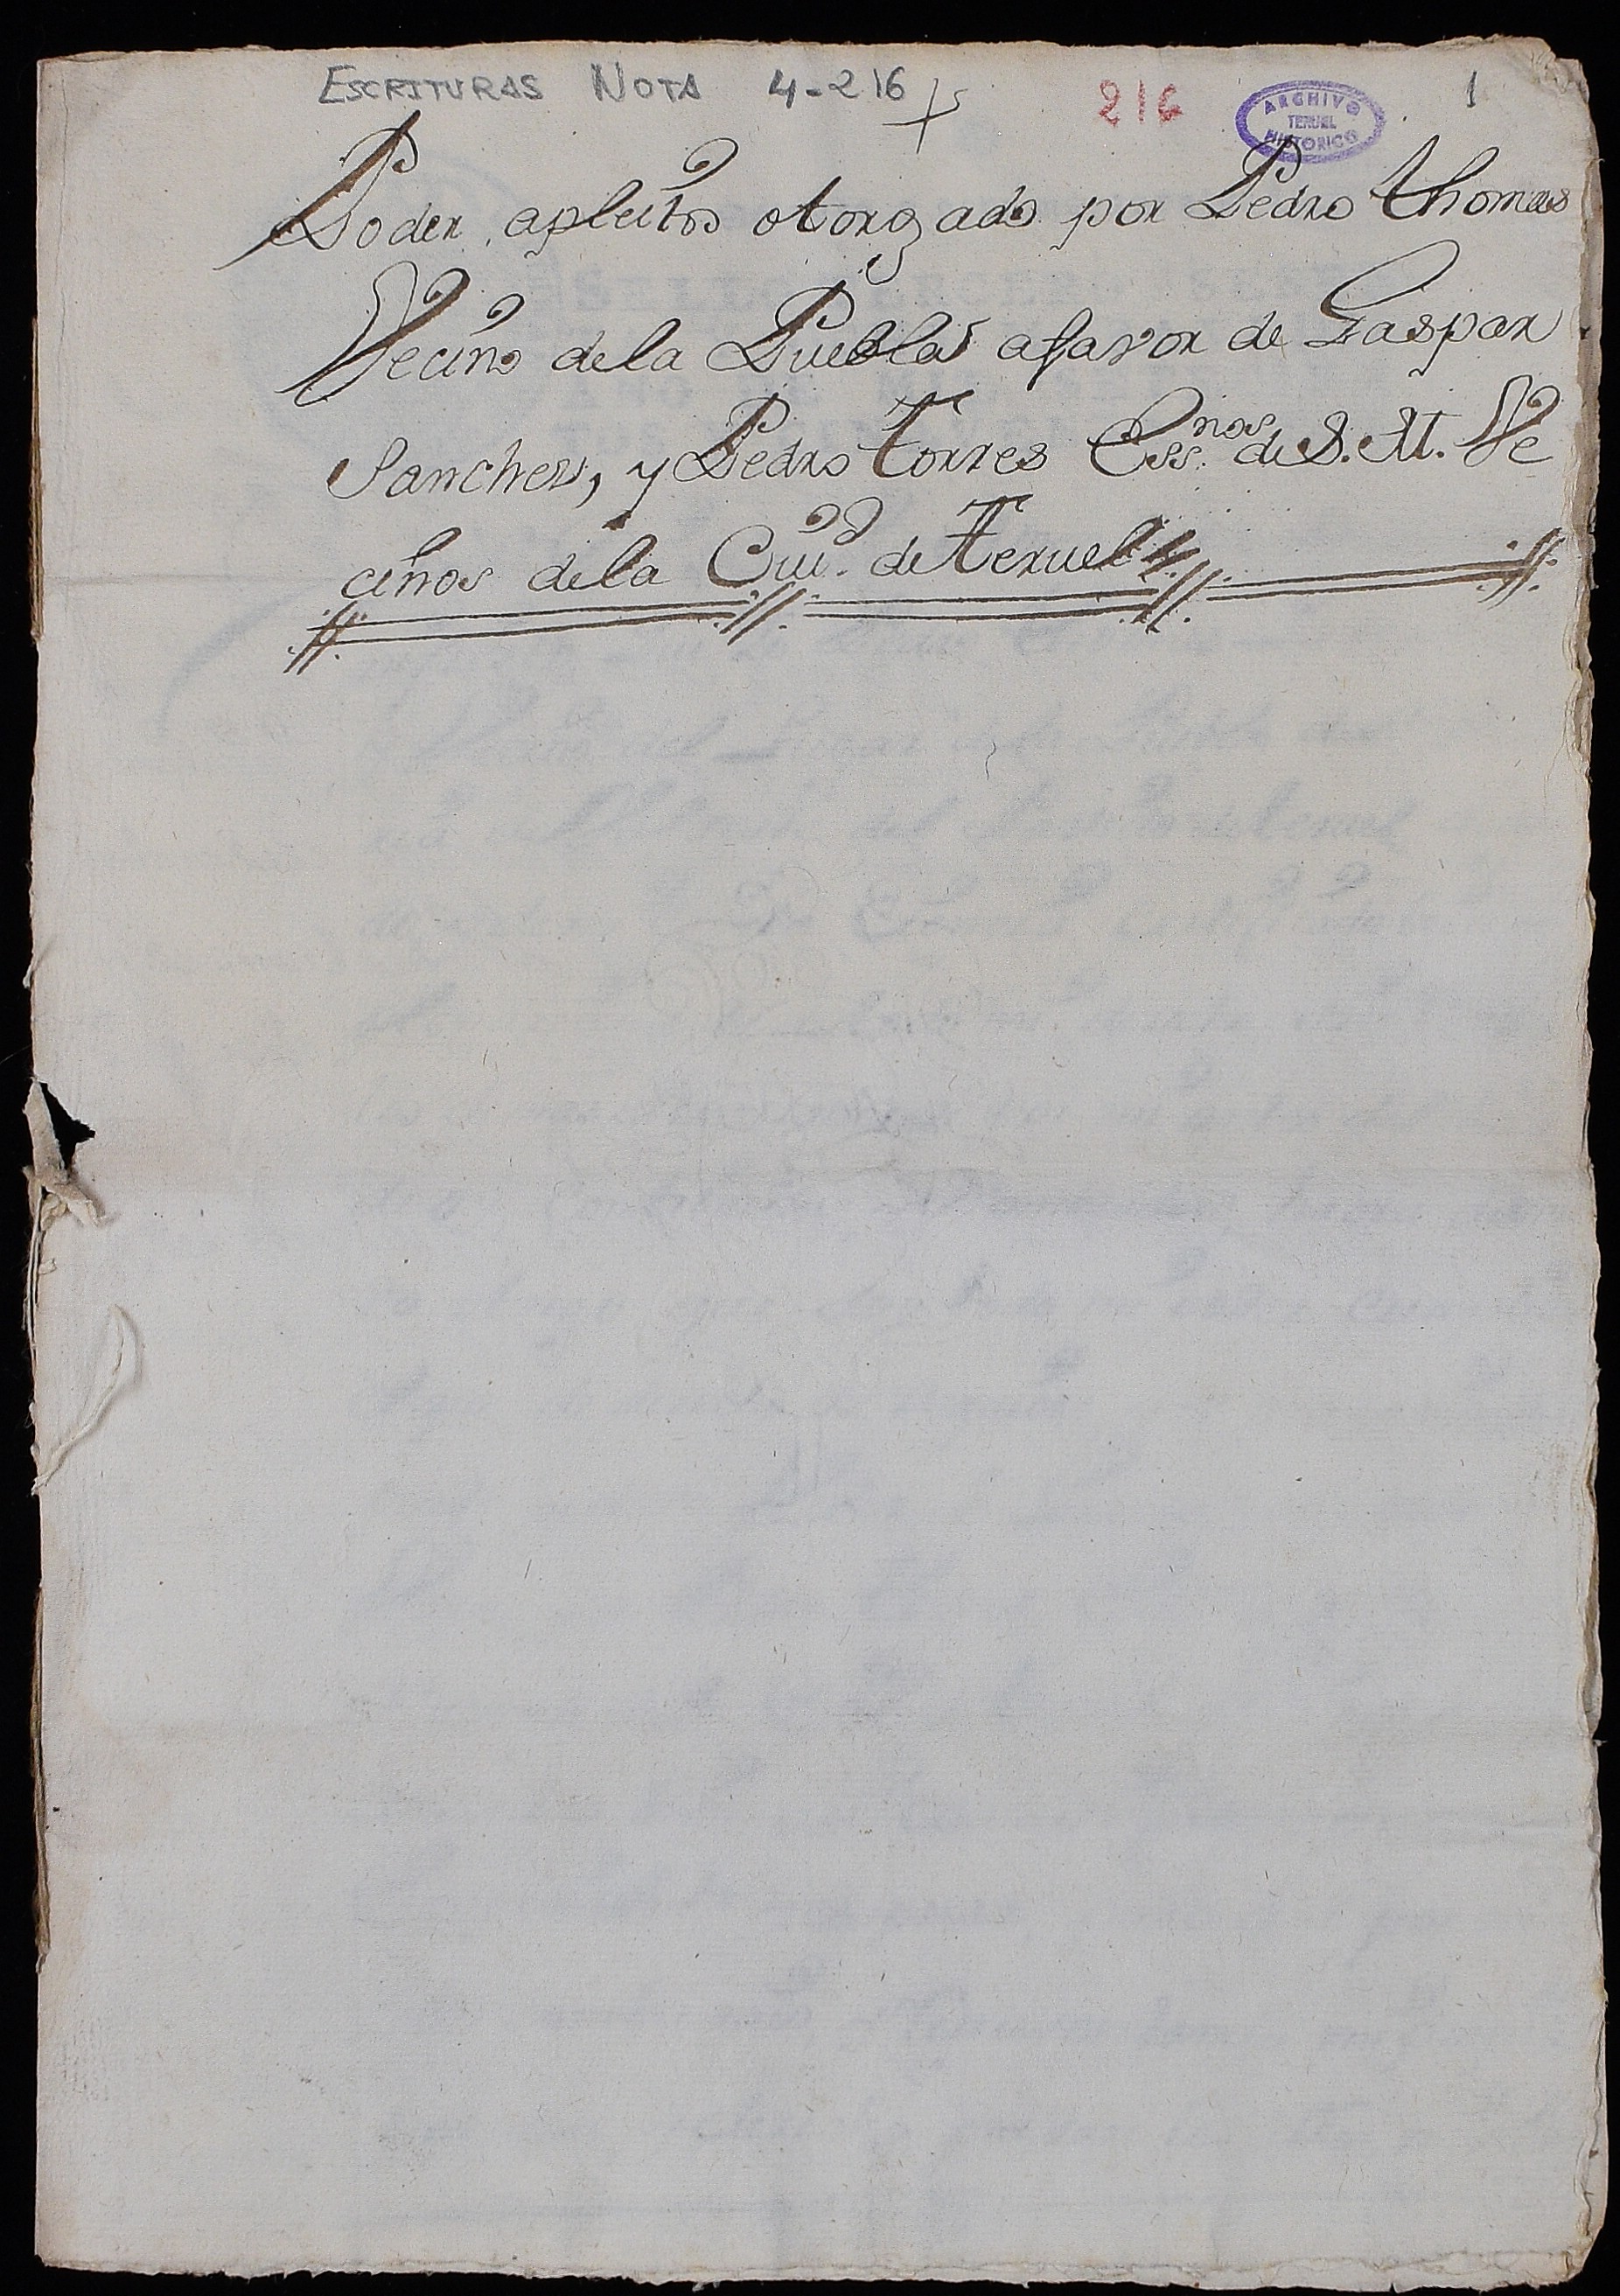 ESCRITURAS NOTA 4-216 216 ARCHIVO HISTORICO TERUEL 1
Poder, apleitos otorgado por Pedro thomas
Vecino dela Puebla afavor de Gaspar
Sanchez, y Pedro Torres Ess.nos de S. M. Ve
cinos dela Ciud. de Teruel